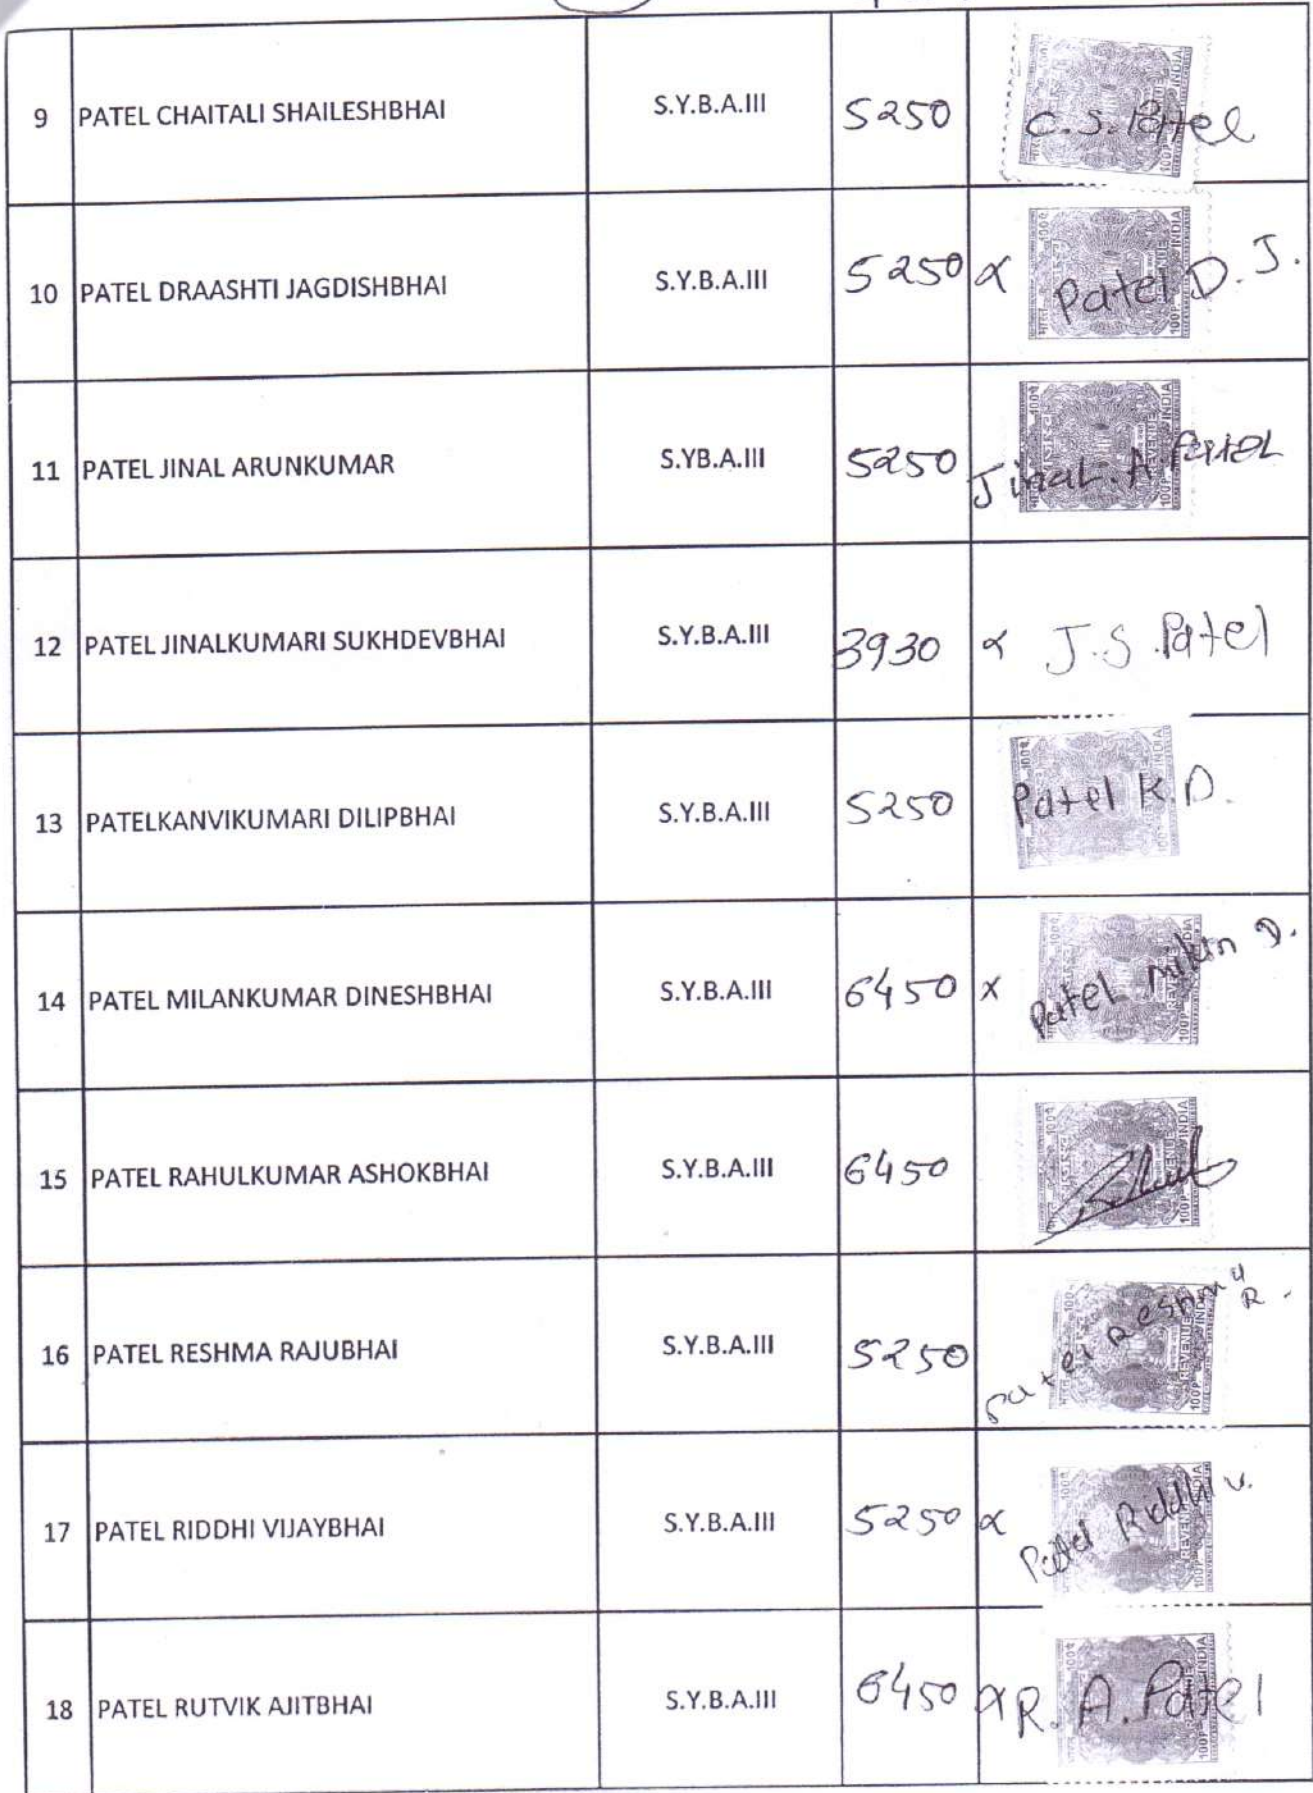 9 PATEL CHAITALI SHAILESHBHAI S.Y.B.A.III 5250 C.S.Patel
10 PATEL DRAASHTI JAGDISHBHAI S.Y.B.A.III 5250 x Patel D.J.
11 PATEL JINAL ARUNKUMAR S.YB.A.III 5250 Jinal.A.Patel
12 PATEL JINALKUMARI SUKHDEVBHAI S.Y.B.A.III 3930 x J.S.Patel
13 PATELKANVIKUMARI DILIPBHAI S.Y.B.A.III 5250 Patel K.D.
14 PATEL MILANKUMAR DINESHBHAI S.Y.B.A.III 6450 x Patel milan D.
15 PATEL RAHULKUMAR ASHOKBHAI S.Y.B.A.III 6450
16 PATEL RESHMA RAJUBHAI S.Y.B.A.III 5250 Patel Reshma R.
17 PATEL RIDDHI VIJAYBHAI S.Y.B.A.III 5250 x Patel Riddhi V.
18 PATEL RUTVIK AJITBHAI S.Y.B.A.III 6450 x R.A.Patel